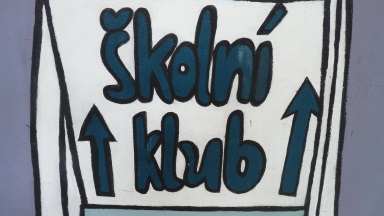 školní
klub